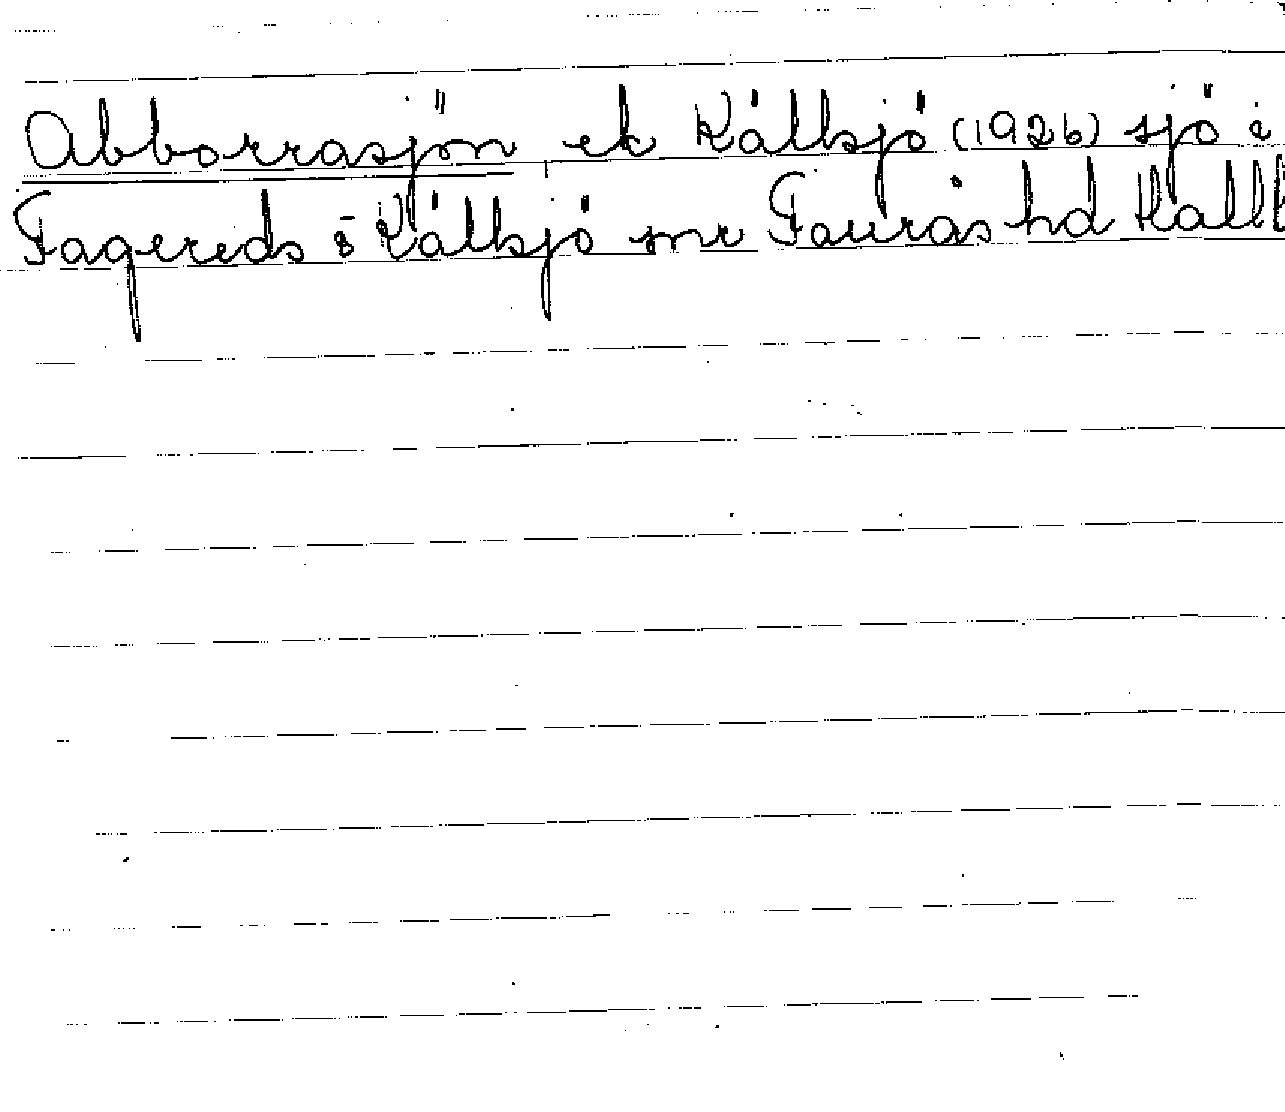 Abborrasjön ek Källsjö (1926) sjö i
Fagereds o Källsjö snr Faurås hd Hall